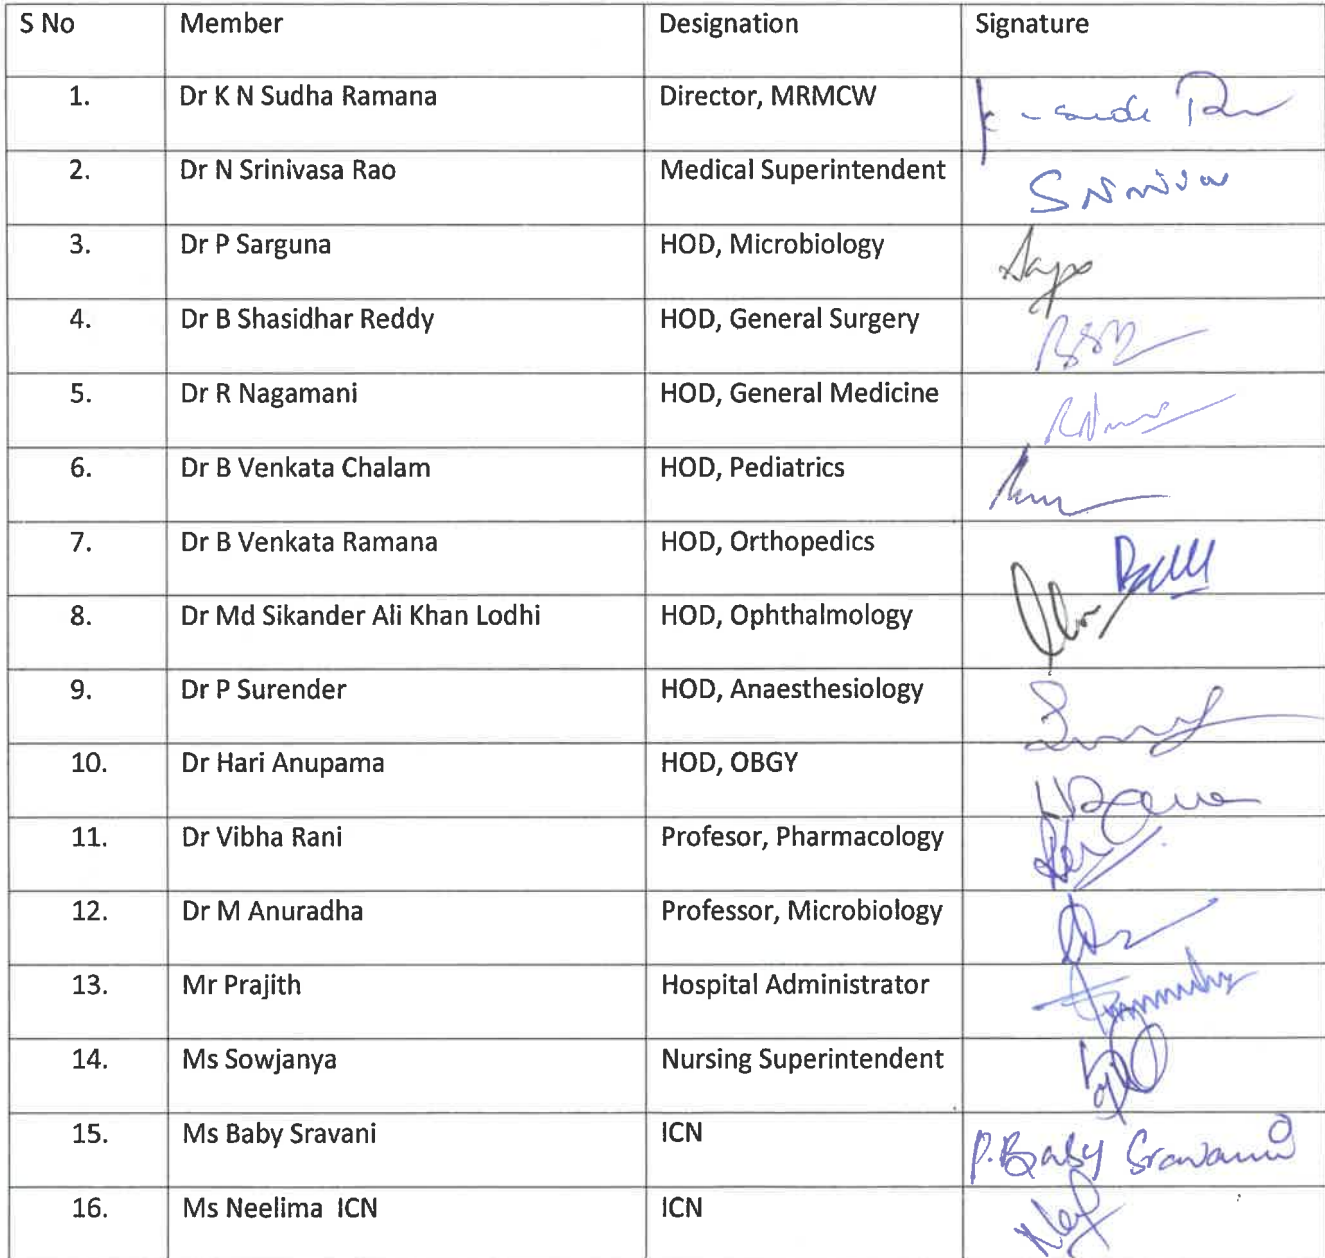 S No Member Designation Signature
1. Dr K N Sudha Ramana Director, MRMCW
2. Dr N Srinivasa Rao Medical Superintendent
3. Dr P Sarguna HOD, Microbiology
4. Dr B Shasidhar Reddy HOD, General Surgery
5. Dr R Nagamani HOD, General Medicine
6. Dr B Venkata Chalam HOD, Pediatrics
7. Dr B Venkata Ramana HOD, Orthopedics
8. Dr Md Sikander Ali Khan Lodhi HOD, Ophthalmology
9. Dr P Surender HOD, Anaesthesiology
10. Dr Hari Anupama HOD, OBGY
11. Dr Vibha Rani Profesor, Pharmacology
12. Dr M Anuradha Professor, Microbiology
13. Mr Prajith Hospital Administrator
14. Ms Sowjanya Nursing Superintendent
15. Ms Baby Sravani ICN P. Baby Sravani
16. Ms Neelima ICN ICN